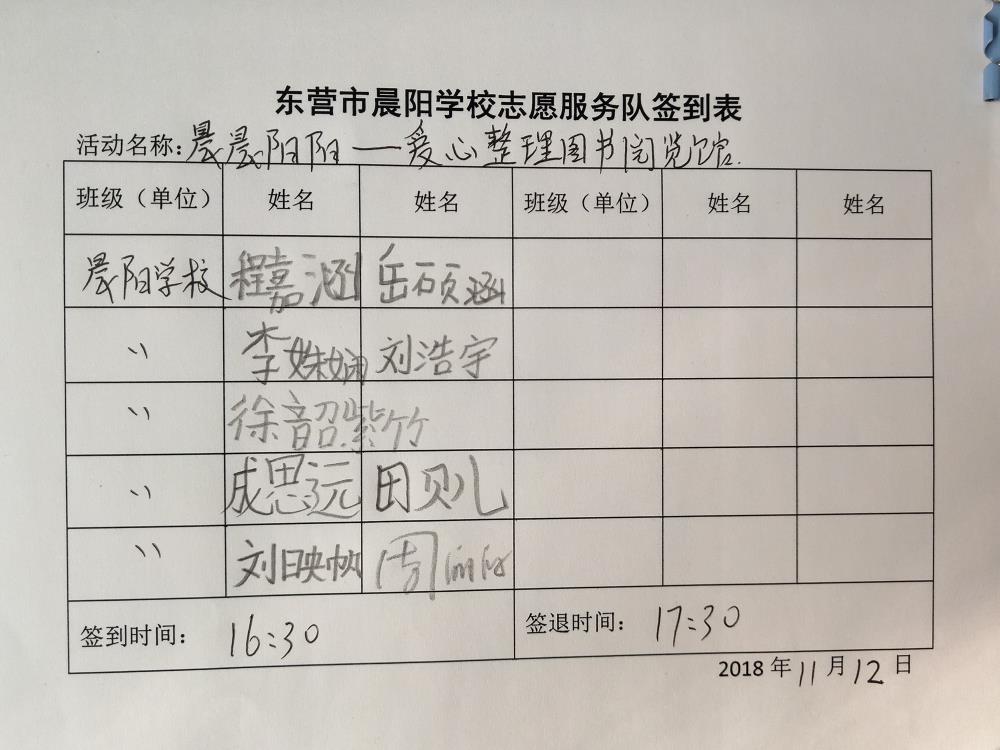 东营市晨阳学校志愿服务队签到表
活动名称:晨晨阳阳——爱心整理图书阅览馆.
班级（单位） 姓名 姓名 班级（单位） 姓名 姓名
晨阳学校 程嘉涵 岳硕涵
〃 李姝娴 刘浩宇
〃 徐韶紫竹
〃 成思远 田贝儿
〃 刘映帆 周
签到时间: 16:30 签退时间: 17:30
2018年11月12日